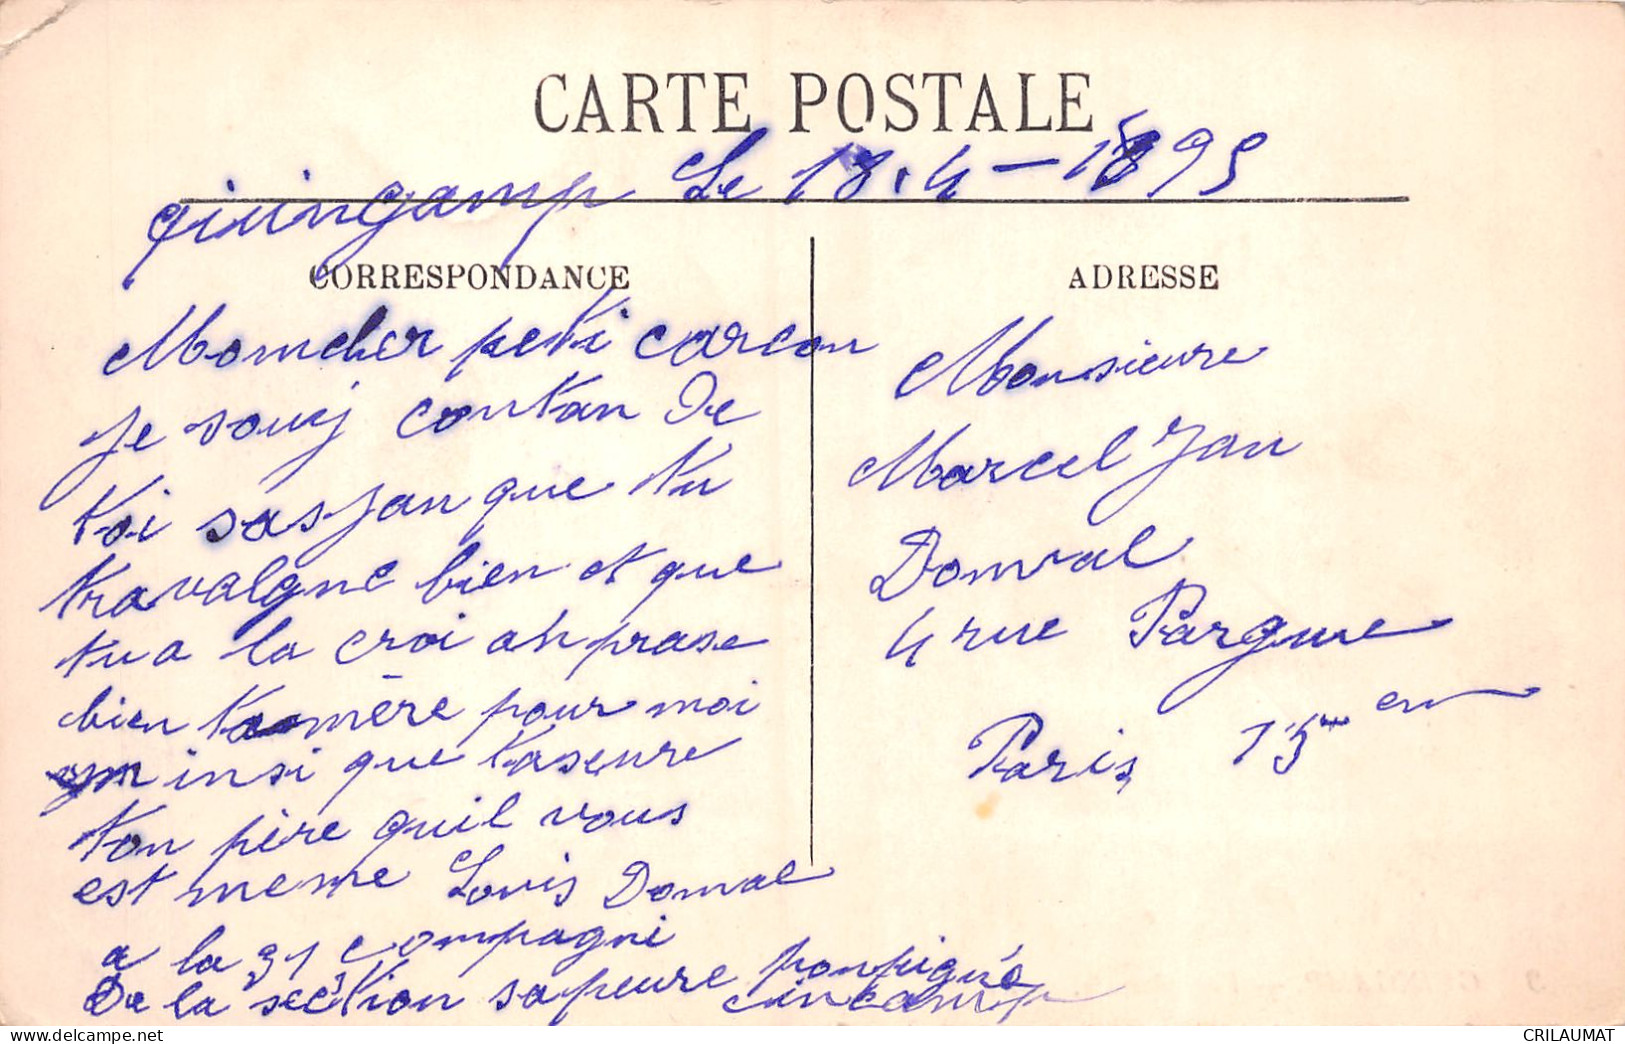 CARTE POSTALE
quingamp Le 18.4-1895
CORRESPONDANCE
Moncher petit carcon
Je souij contan De
toi sasjan que tu
travalgne bien et que
tu a la croi anprase
bien ta mère pour moi
insi que taseure
ton père quil vous
est meme Louis Donval
a la 31 compagni
De la section sapeure ponpigné
cincamp
ADRESSE
Monsieure
Marcel Jan
Donval
4 rue Pargue
Paris 15 em
CRILAUMAT